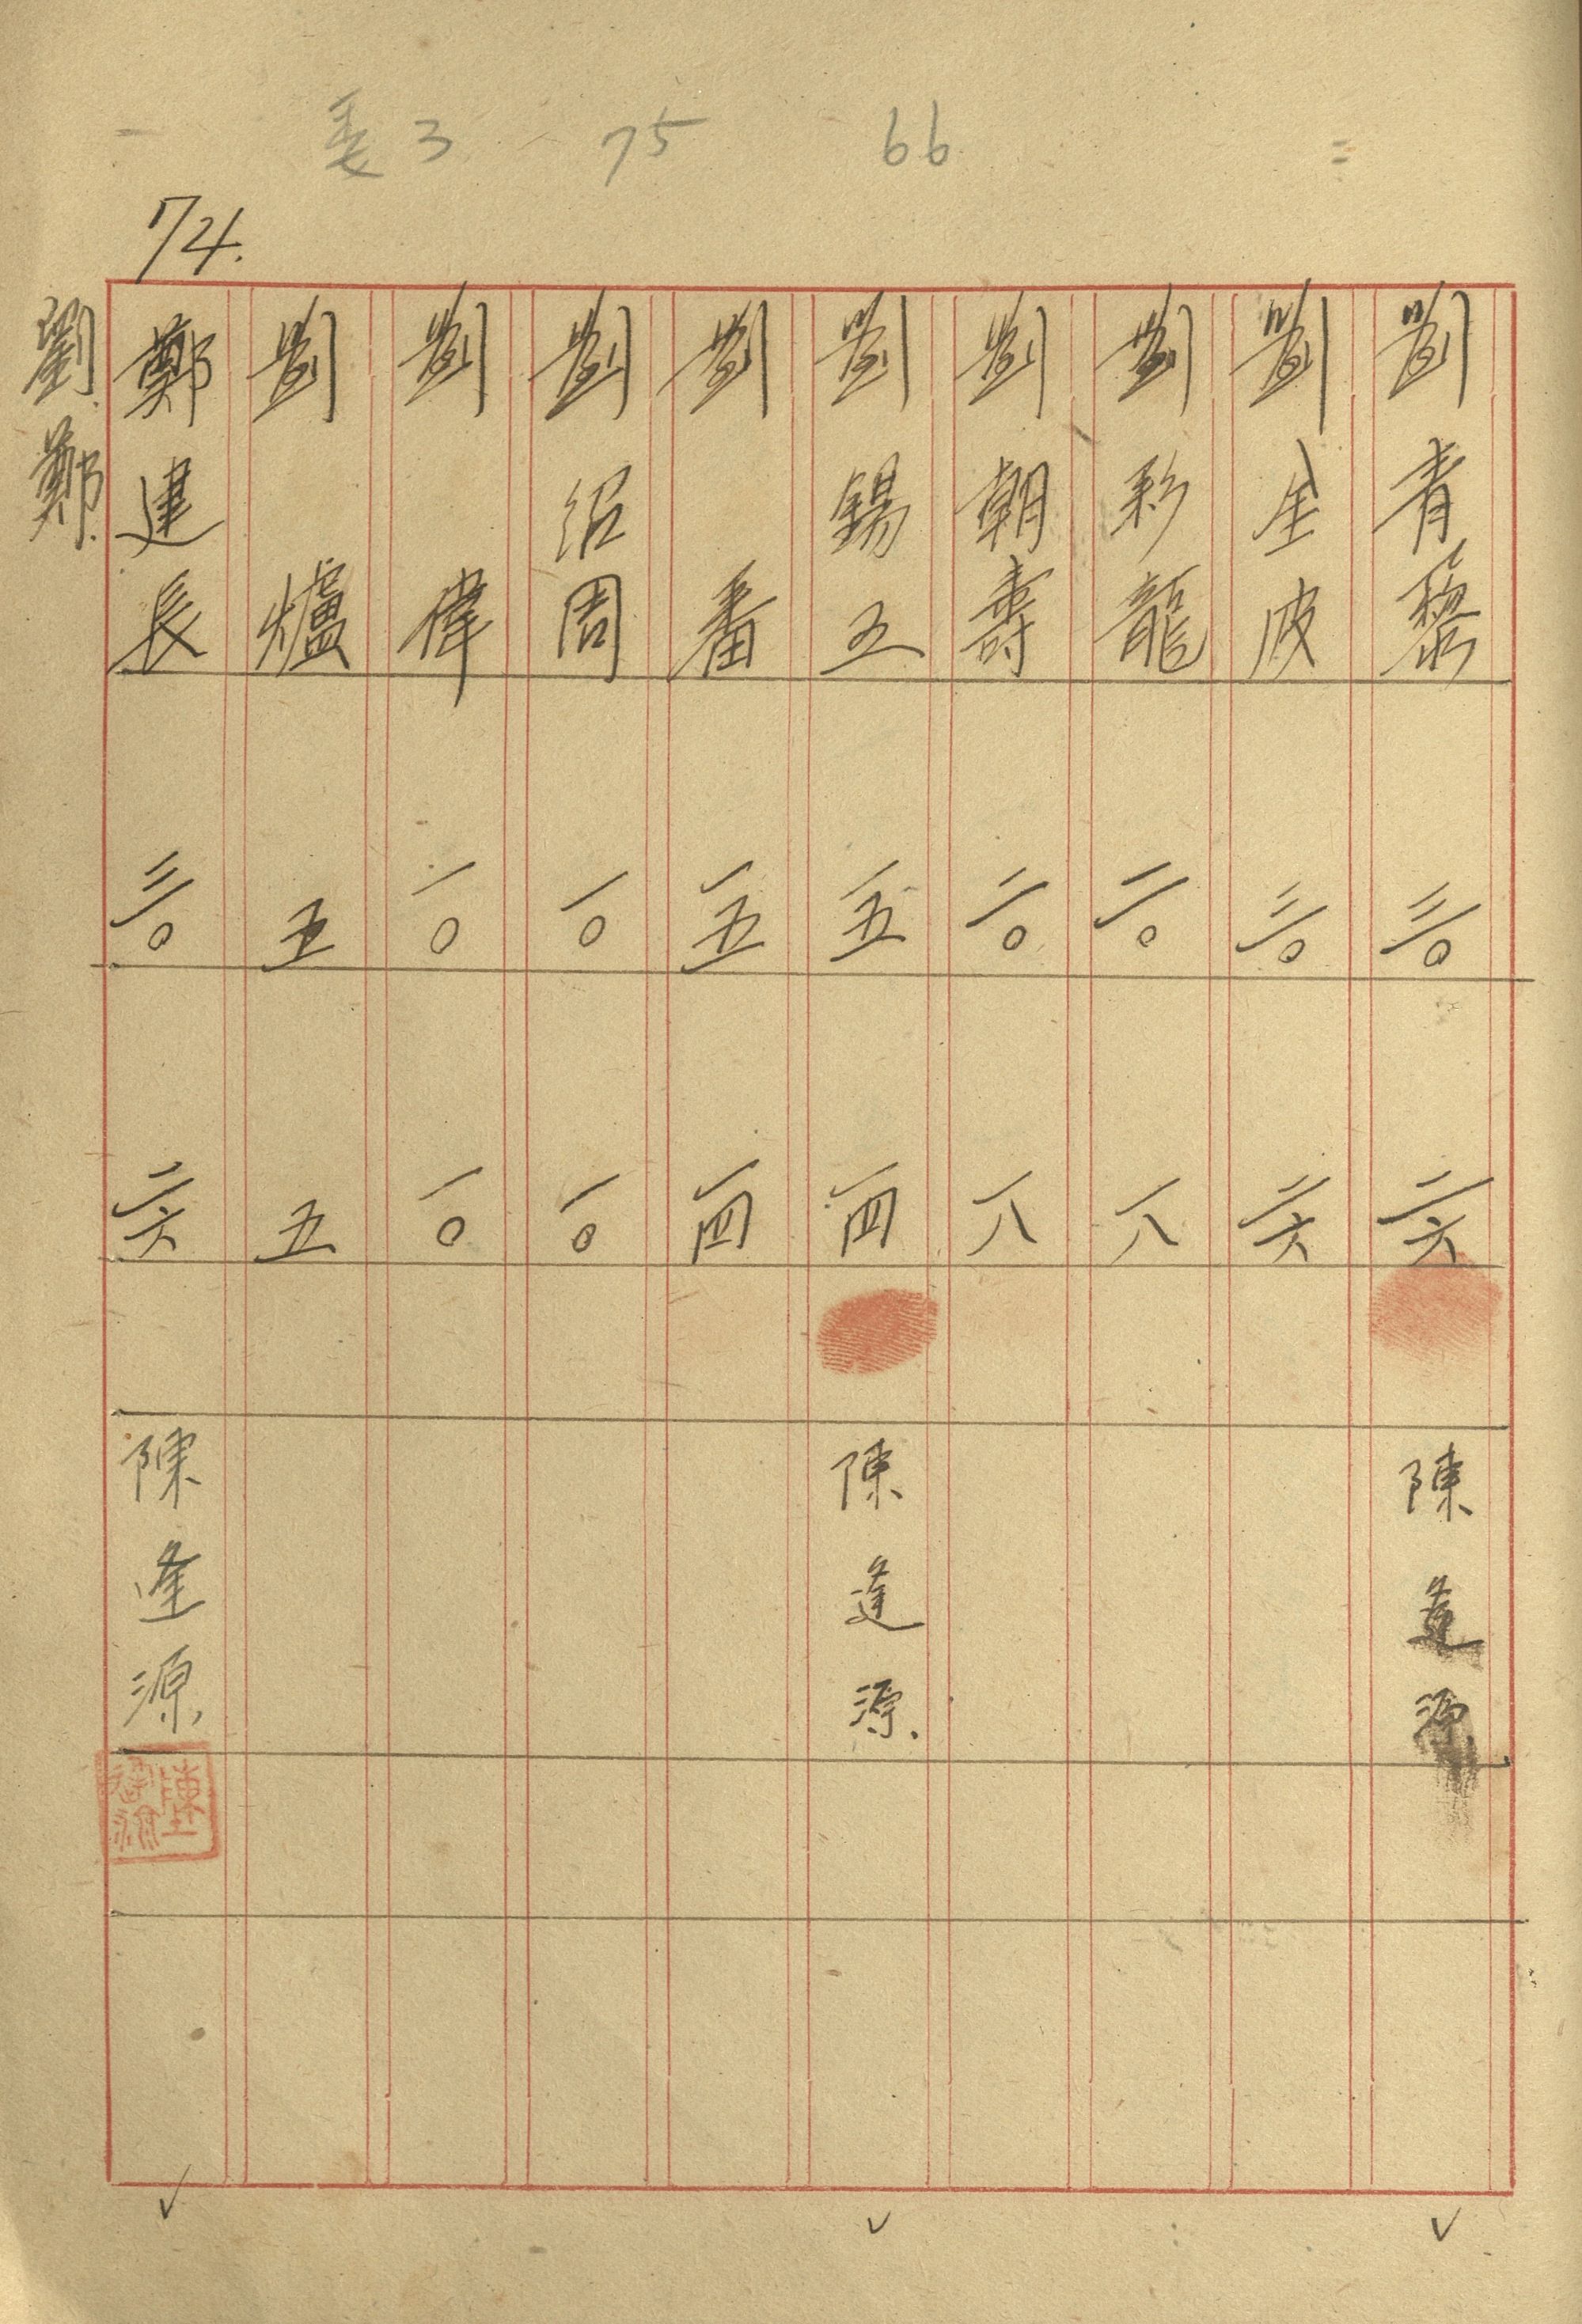 3 75 66
74.
劉青黎 三〇 二六 陳逢源
劉生波 三〇 二六
劉彩龍 二〇 一八
劉朝壽 二〇 一八
劉錫五 一五 一四 陳逢源
劉番 一五 一四
劉紹周 一〇 一〇
劉偉 一〇 一〇
劉爐 五 五
鄭建長 三〇 二六 陳逢源
劉.鄭.